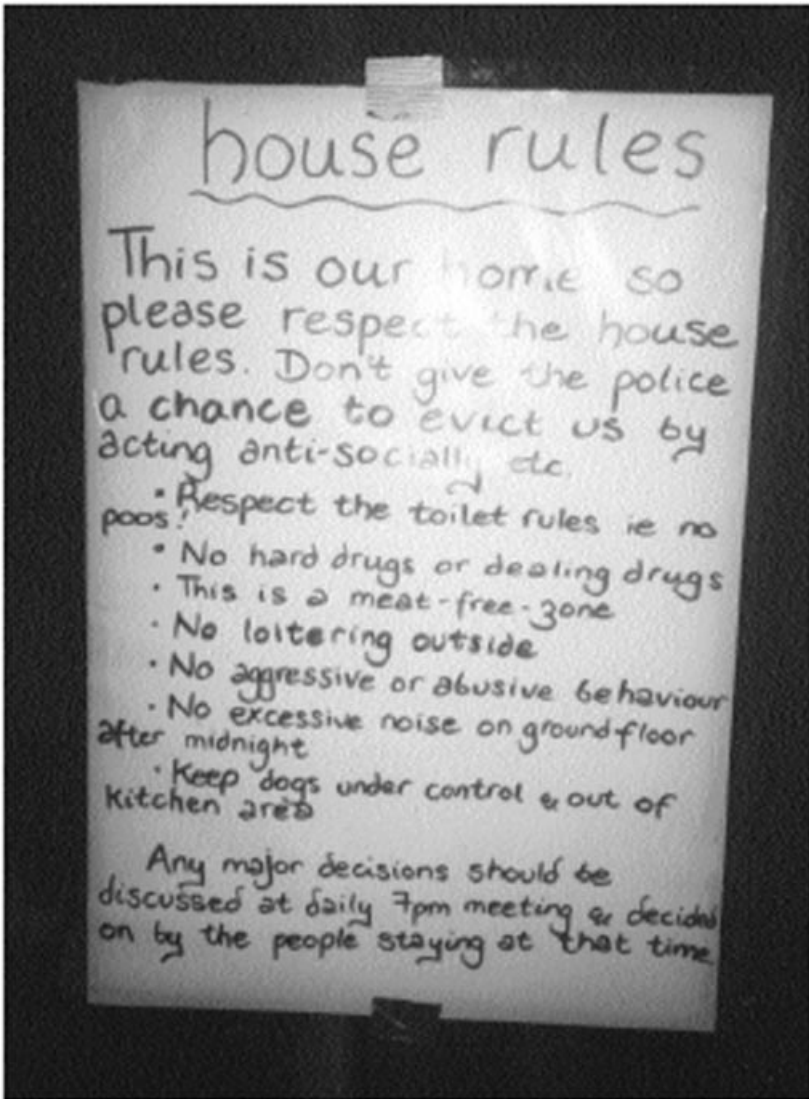 house rules
This is our home so
please respect the house
rules. Don't give the police
a chance to evict us by
acting anti-socially etc.
• Respect the toilet rules ie no
poos!
• No hard drugs or dealing drugs
• This is a meat-free-zone
• No loitering outside
• No aggressive or abusive behaviour
• No excessive noise on groundfloor
after midnight
• Keep dogs under control & out of
kitchen area
Any major decisions should be
discussed at daily 7pm meeting & decided
on by the people staying at that time